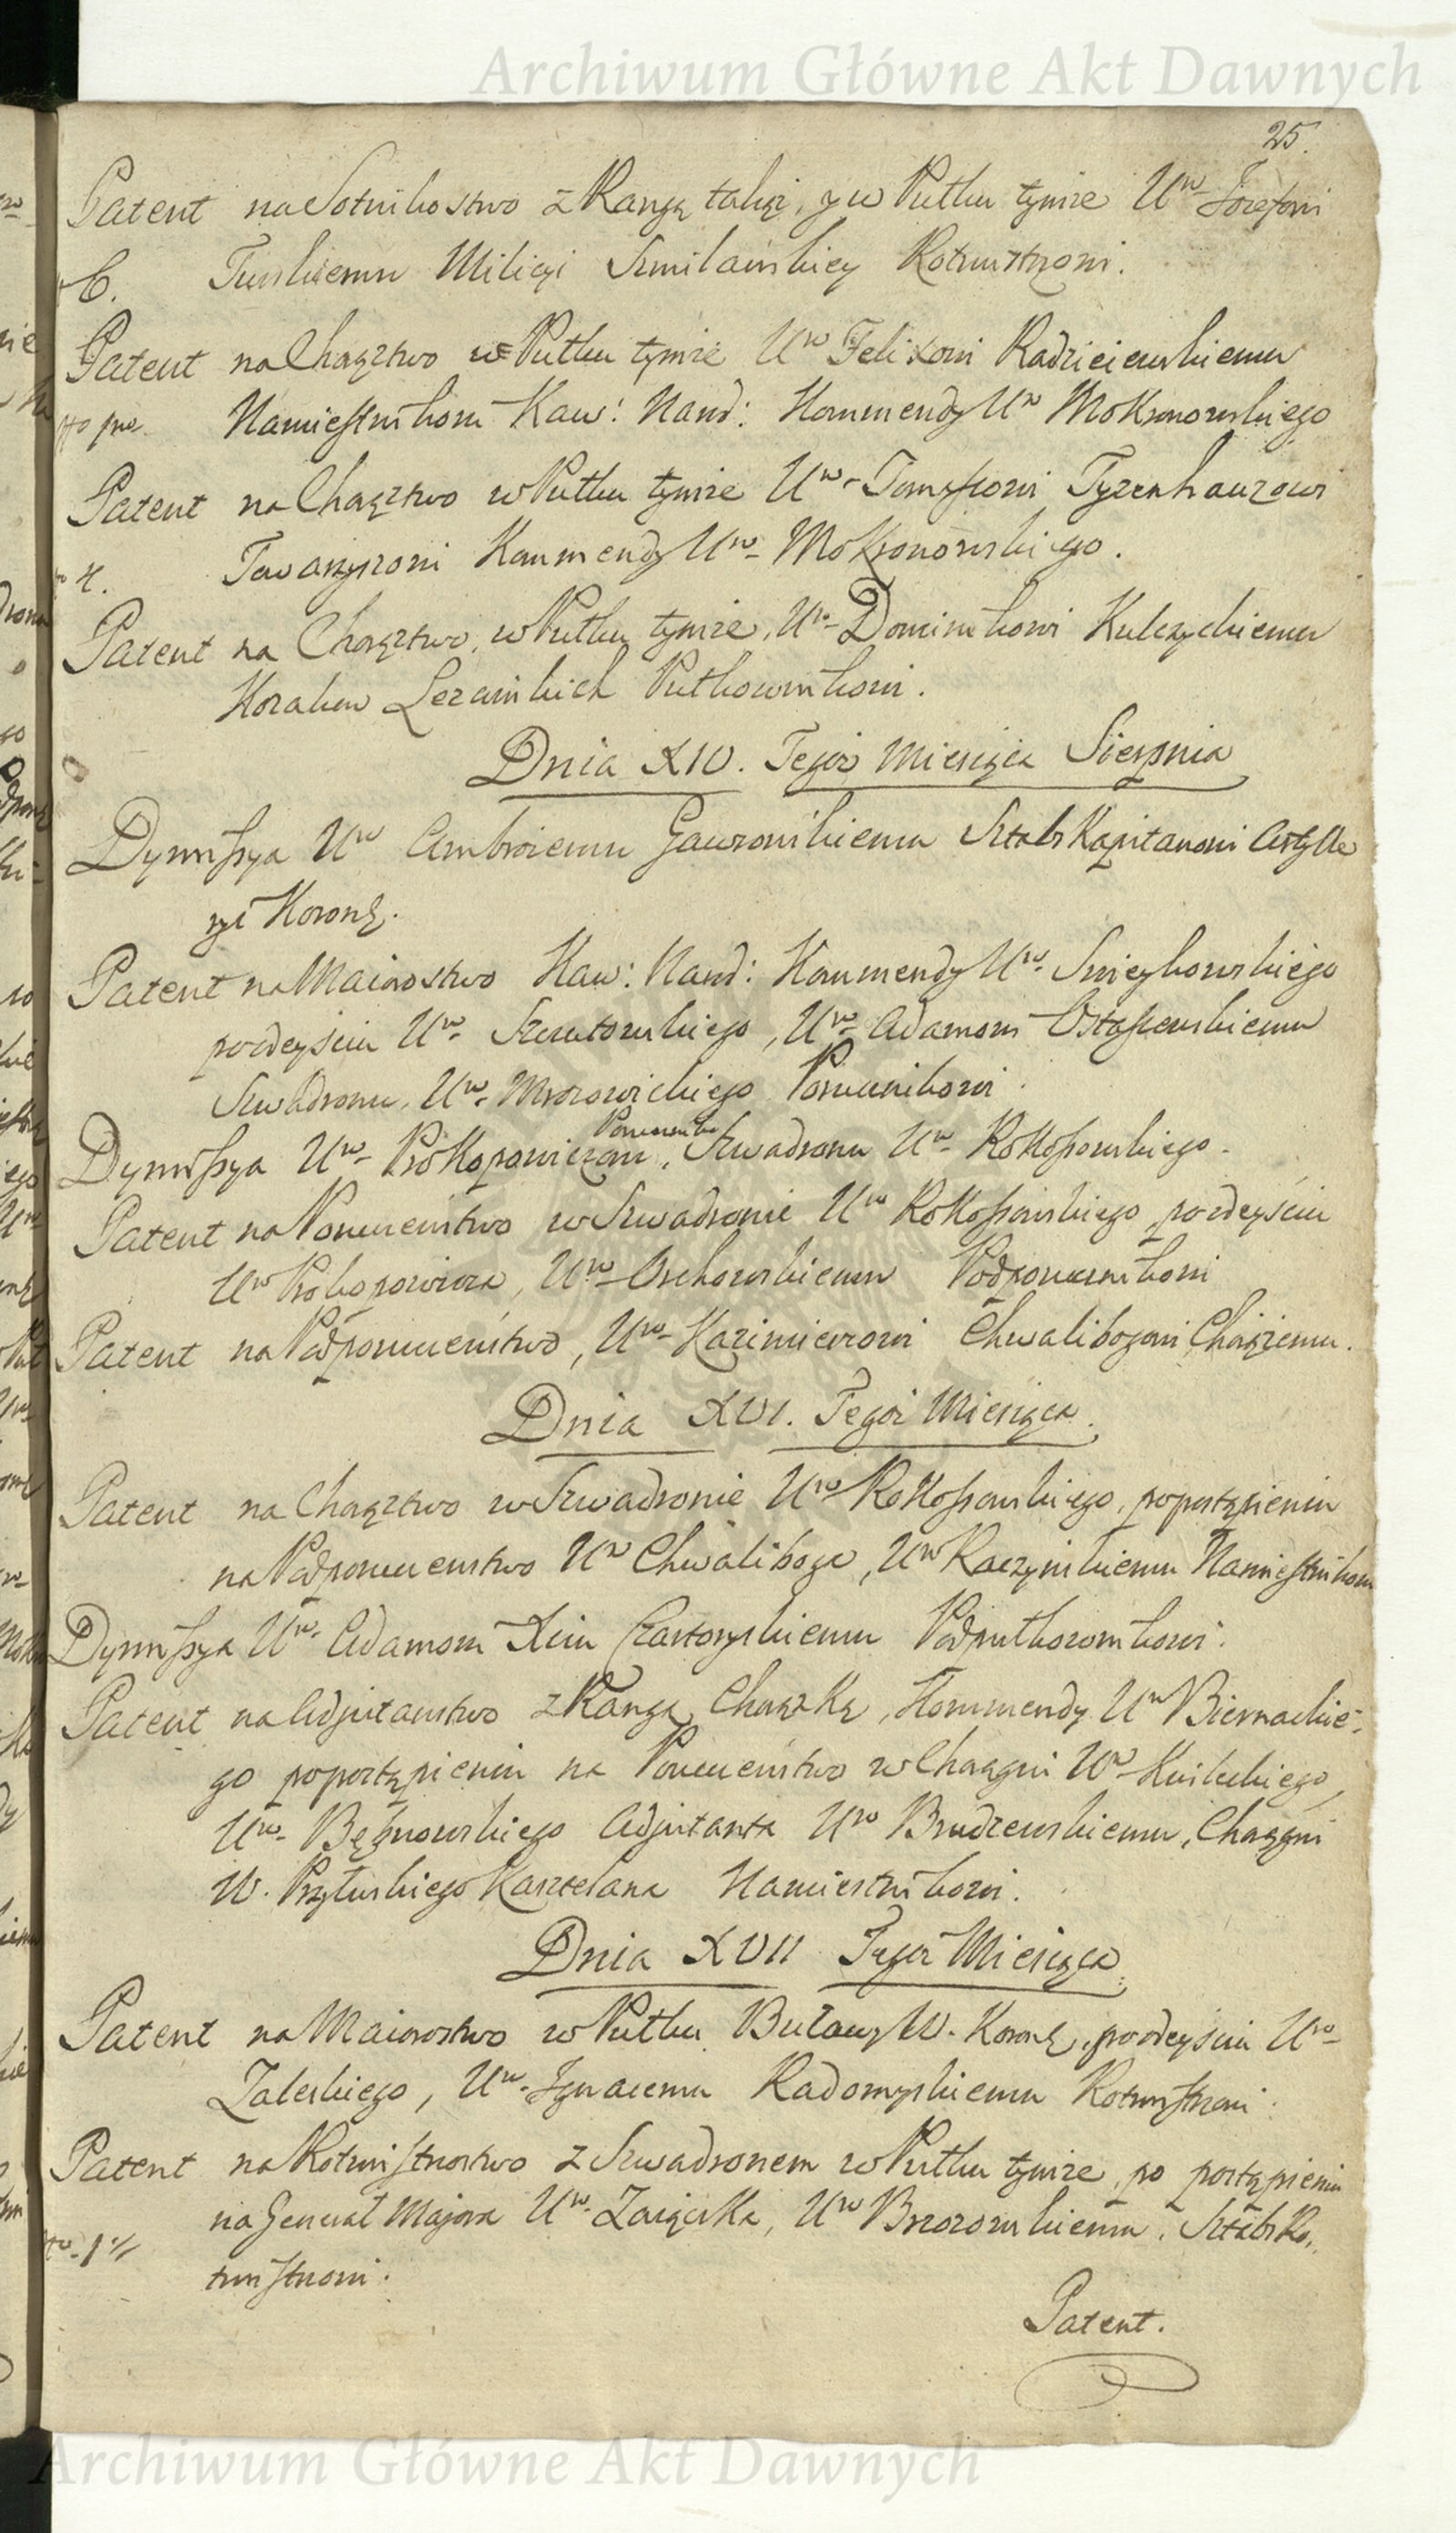 Archiwum Główne Akt Dawnych
25.
Patent na Sotnikostwo z Rangą takąż, y w Pułku tymże Uro Jozefowi
C. Turskiemu Milicyi Smilańskiey Rotmistrzowi.
Patent na Chorąztwo w Pułku tymże Uro Felixowi Radzieiewskiemu
Namiestnikowi Kaw: Narod: Kommendy Uro Mokronowskiego
Patent na Chorąztwo w Pułku tymże Uro Tyzenhauzowi
Towarzyszowi Kommendy Uro Mokronowskiego.
Patent na Chorąztwo, w Pułku tymże, Uro Dominikowi Kulczyckiemu
Kozaków Pułkownikowi.
Dnia XIV. Tegoż Miesiąca Sierpnia
Dymissya Uro Ambrożemu Gawrońskiemu Sztabs Kapitanowi Artylle
ryi Koronę.
Patent na Maiorostwo Kaw: Narod: Kommendy Uro Swieykowskiego
po odeyściu Uro Uro Adamowi Ostaszewskiemu
Szwadronu, Uro Mrozowickiego Porucznikowi.
Porucznikowi
Dymissya Uro Prokopowiczowi, Szwadronu Uro Rokossowskiego.
Patent na Poruczeństwo w Szwadronie Uro Rokossowskiego po odeyściu
Uro Prokopowicza, Uro Orchowskiemu Podporucznikowi
Patent na Podporuczeństwo, Uro Kazimierzowi Chwalibogowi Chorążemu.
Dnia XVI. Tegoż Miesiąca.
Patent na Chorąztwo w Szwadronie Uro Rokossowskiego, po postąpieniu
na Podporuczenstwo Uro Chwaliboga, Uro Raczyńskiemu Namiestnikowi
Dymissya Uro Adamowi Xciu Czartoryskiemu Podpułkownikowi.
Patent na Adjutanstwo z Rangą Chorążką, Kommendy Uro Biernackie-
go po postąpieniu na Poruczeństwo w Chorągwi Uro
Uro Adjutanta Uro Brudzewskiemu, Chorągwi
W. Przyłuskiego Kasztelana Namiestnikowi.
Dnia XVII Tegoż Miesiąca.
Patent na Maiorostwo w Pułku Buławy W. Koronę, po odeyściu Uro
Zaleskiego, Uro Ignacemu Radomyskiemu Rotmistrzowi.
Patent na Rotmistrzostwo z Szwadronem w Pułku tymże, po postąpieniu
na Generał Majora Uro Zaiączka, Uro Brzozowskiemu. Sztabs Ro,
tmistrzowi.
Patent.
Archiwum Główne Akt Dawnych